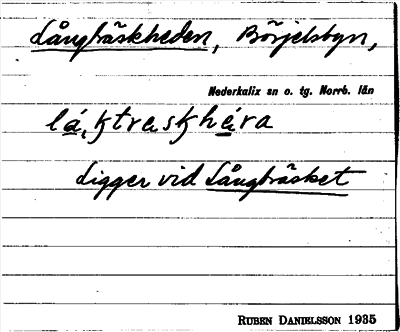 Långträskheden, Börjelsbyn,
Nederkalix sn o. tg. Norrb. län
Ligger vid Långträsket
RUBEN DANIELSSON 1935